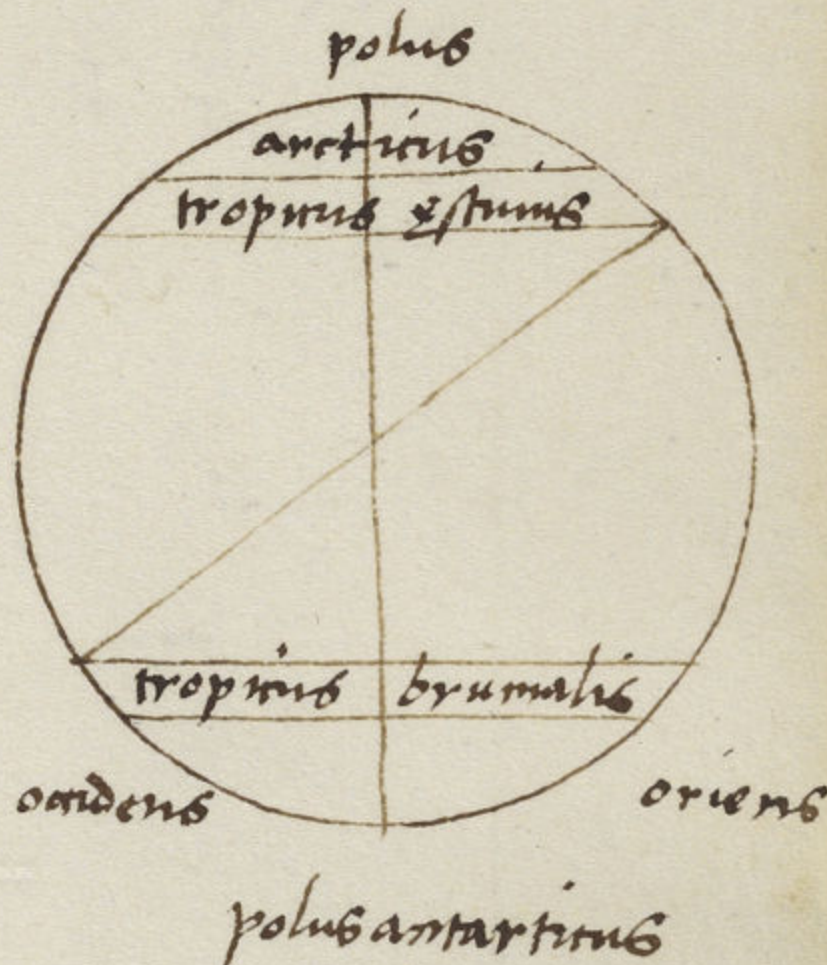 polus
arcticus
tropicus ęstiuus
tropicus brumalis
occidens oriens
polus antarticus